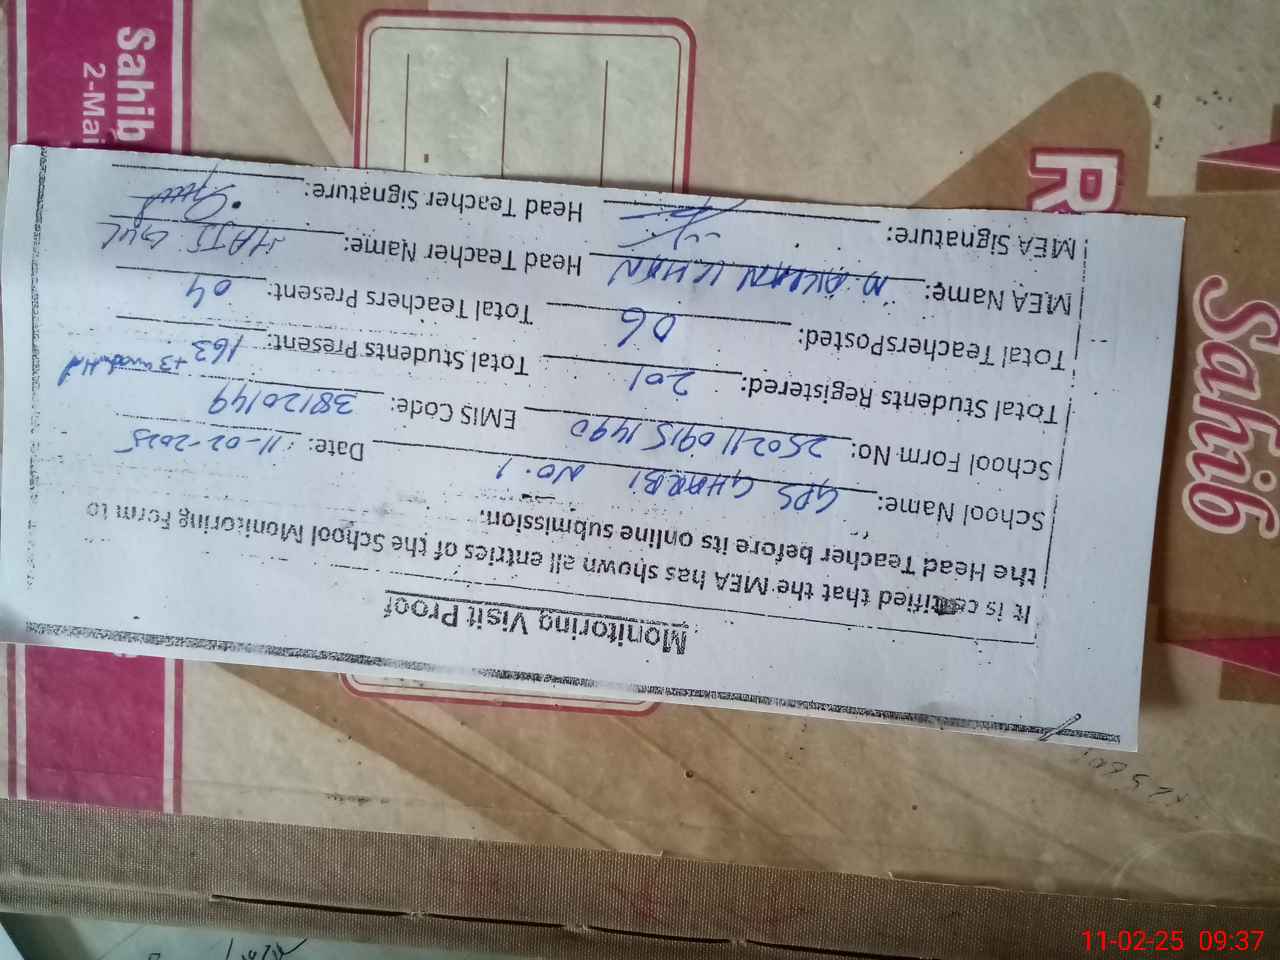 Monitoring Visit Proof
It is certified that the MEA has shown all entries of the School Monitoring Form to
the Head Teacher before its online submission.
School Name: GPS GHARBI NO.1 Date: 11-02-2025
School Form No: 25021109151490 EMIS Code: 38120149
Total Students Registered: 201 Total Students Present: 163 +3
Total TeachersPosted: 06 Total Teachers Present: 04
MEA Name: M AKRAM KHAN Head Teacher Name: HAJI GUL
MEA Signature: Head Teacher Signature:
Sahib
2-Mai
R
Sahib
11-02-25 09:37